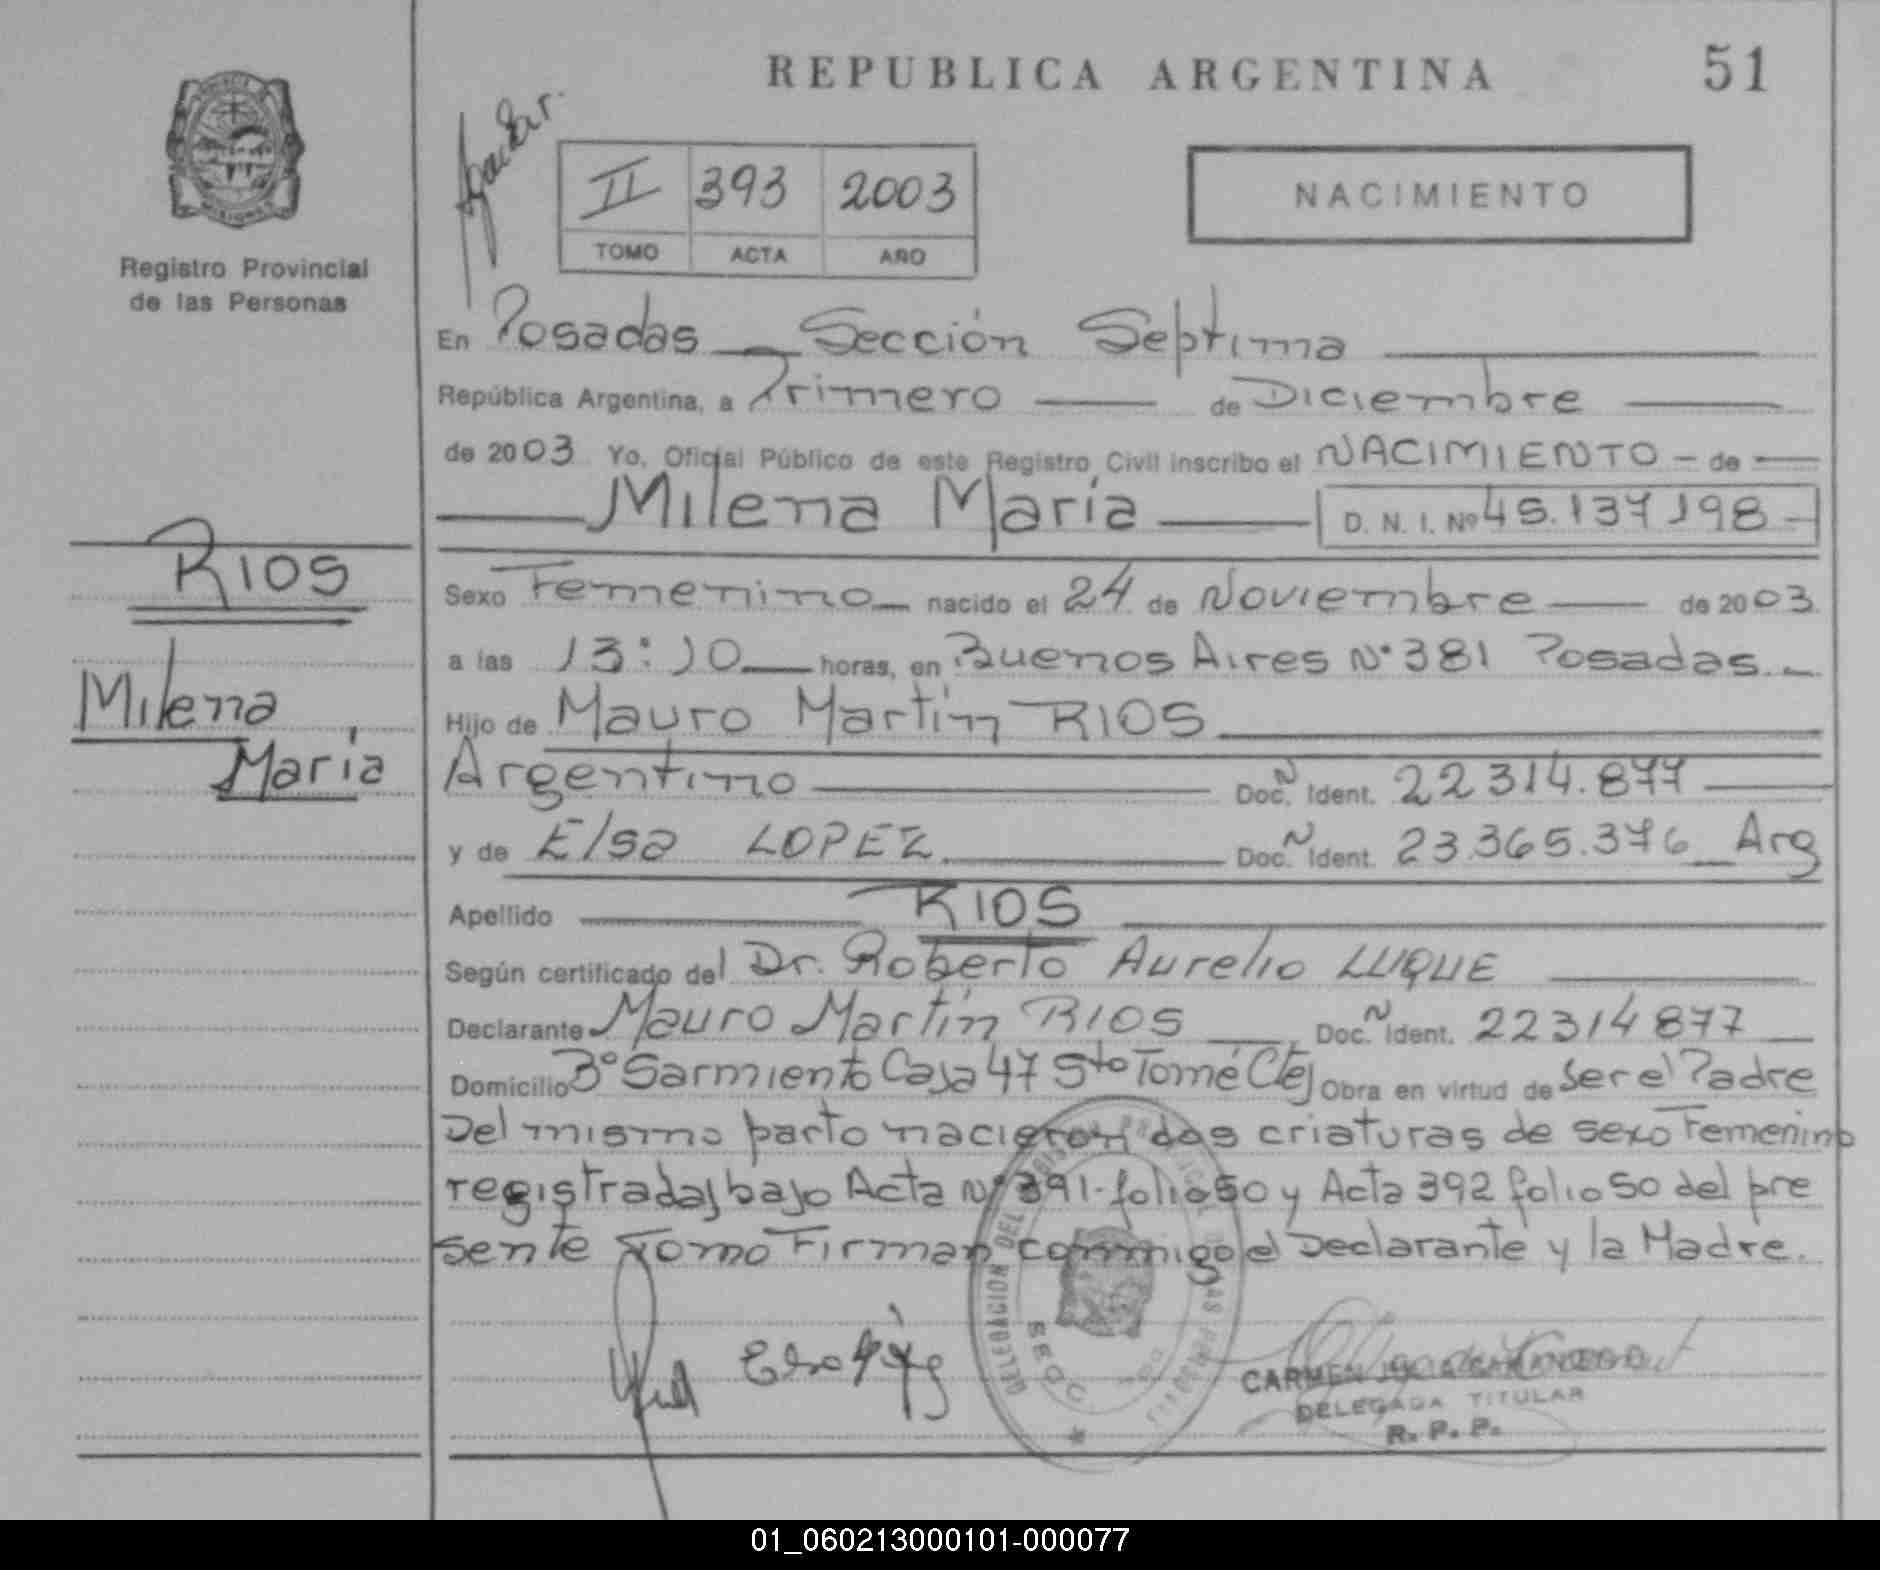 REPUBLICA ARGENTINA
51
II 393 2003
TOMO ACTA AÑO
NACIMIENTO
Registro Provincial
de las Personas
En Posadas Sección Septima
República Argentina, a Primero de Diciembre
de 2003 Yo, Oficial Público de este Registro Civil inscribo el NACIMIENTO - de
Milena María D. N. I. Nº 45.137.198
RIOS
Milena
María
Sexo Femenino nacido el 24 de Noviembre de 2003
a las 13:10 horas, en Buenos Aires Nº 381 Posadas.
Hijo de Mauro Martín RIOS
Argentino Doc. Ident. 22314.877
y de Elsa LOPEZ Doc. Ident. 23.365.376 Arg
Apellido RIOS
Según certificado del Dr. Roberto Aurelio LUQUE
Declarante Mauro Martín RIOS Doc. Ident. 22314877
Domicilio Bº Sarmiento Casa 47 Sto Tomé Ctes Obra en virtud de ser el Padre
Del mismo parto nacieron dos criaturas de sexo Femenino
registradas bajo Acta Nº 391-folio 50 y Acta 392 folio 50 del pre
sente Tomo Firman conmigo el Declarante y la Madre.
DELEGACION DEL
SECC.
CARMEN
DELEGADA TITULAR
R. P. P.
01_060213000101-000077